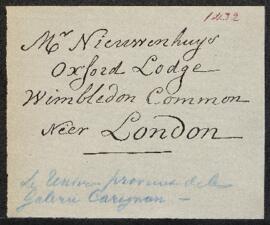 1432
Mr Nieuwenhuys
Oxford Lodge
Wimbledon Common
Neer London
Le Univer provenu de la
Galerie Carignan —